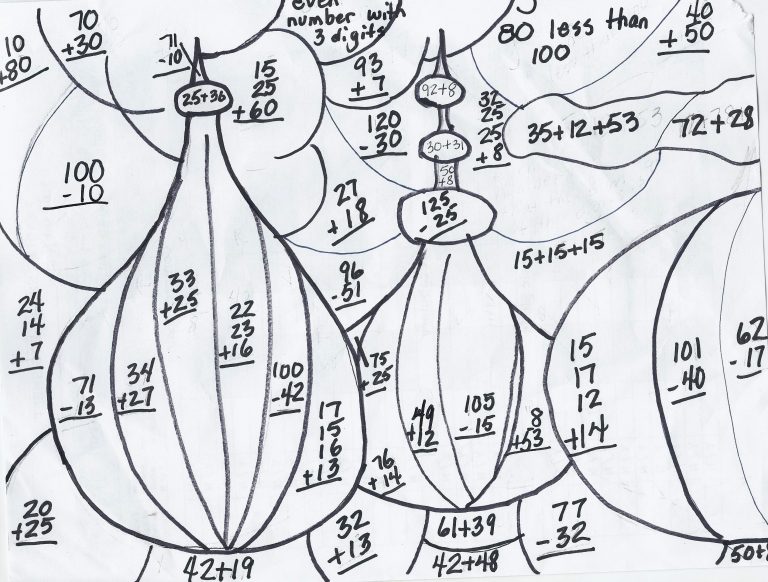 even
number with
3 digits
80 less than
100
40
+ 50
10
+80
70
+30
71
-10
15
25
+60
25+36
93
+ 7
92+8
120
- 30
30+31
50
+8
125
- 25
32
25
25
+ 8
35+12+53
72+28
100
- 10
27
+ 18
15+15+15
96
-51
24
14
+ 7
33
+25
22
23
+16
34
+27
71
- 13
100
-42
17
15
16
+13
75
+25
49
+12
105
- 15
8
+53
15
17
12
+14
101
-40
62
- 17
76
+ 14
20
+25
32
+13
61+39
77
- 32
42+19
42+48